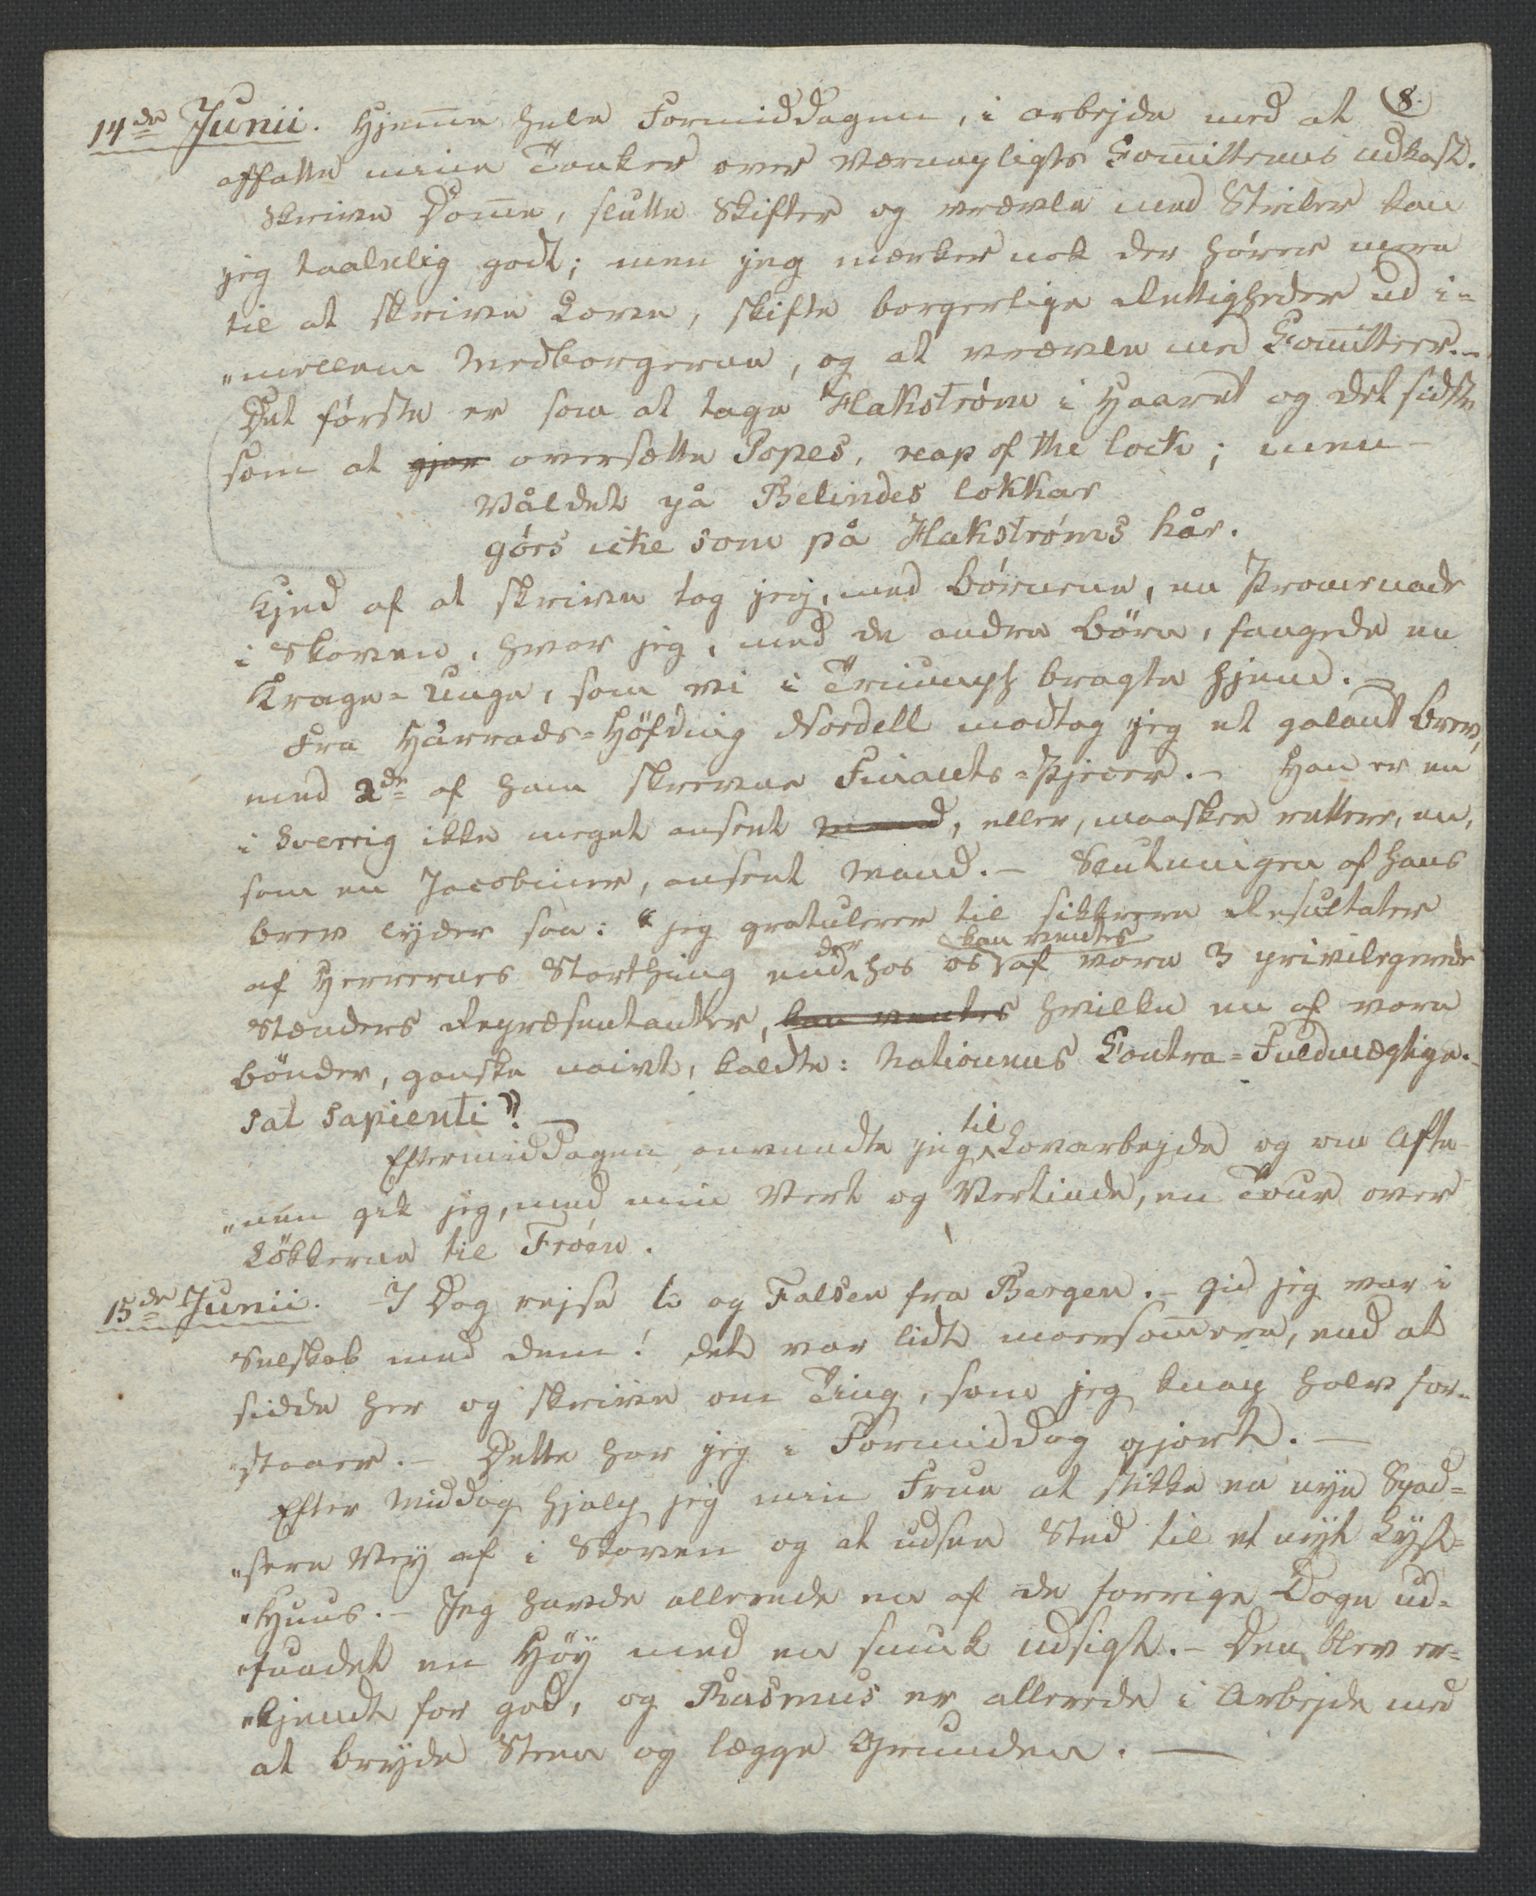 8.
14de Junii. Hjem̅e hele Formiddagen, i arbejde med at
affatte mine Tanker over Værnepligts Com̅itteens udkast.
Skrive Dom̅e, slutte Skifter og vrævle med Striler kan
jeg taalelig godt; men jeg mærker nok der hører mere
til at skrive Love, skifte borgerlige Rettigheder ud i-
„mellem Medborgerne, og at vrævle med Com̅itteer.-
Det første er som at tage Hakstrøm i Haaret og det sidste
som at gjør oversætte Popes, reap of the lock; men-
Våldet på Belindes lokkar
görs icke som på Hakströms hår.
Kjed af at skrive tog jeg, med Børnene, en Promenade
i Skoven, hvor jeg, med de andre Börn, fangede en
Krage-Unge, som vi i Triumph bragte hjem.-
Fra Härrads-Höfding Nordell modtog jeg et galant Brev,
med 2de af ham skrevne Finants-Pjecer.- Han er en
i Sverrig ikke meget anseet Mand, eller, maaskee rettere, en,
som en Jacobiner, anseet Mand.- Slutningen af hans
brev lyder saa: "jeg gratulerer til sikkrere Resultater
af Herrernes Storthing end der hos os kan ventes af vore 3 privilegerede
Stænders Repræsentanter, kan ventes hvilke en af vore
bönder, ganske naivt, kaldte: Nationens Contra-Fuldmægtige.
sat sapienti"! —
Eftermiddagen anvendte jeg til Lovarbejde og om Afte-
„nen gik jeg, med min Vert og Vertinde, en Tour over
Lökkerne til Fröen.
15de Junii. I Dag rejse Is og Falsen fra Bergen.- gid jeg var i
Selskab med dem! det var lidt moersom̅ere, end at
sidde her og skrive om Ting, som jeg knap halv for-
„staaer.- Dette har jeg i Formiddag gjort.—
Efter Middag hjalp jeg min Frue at stikke en nye Spad-
„sere Vej af i Skoven og at udsee Sted til et nyt Lyst-
„Huus.- Jeg havde allerede en af de forrige Dage ud-
„fundet en Höy med en smuk udsigt.- Den blev er-
„kjendt for god, og Rasmus er allerede i Arbejde med
at bryde Steen og lægge Grunden.—